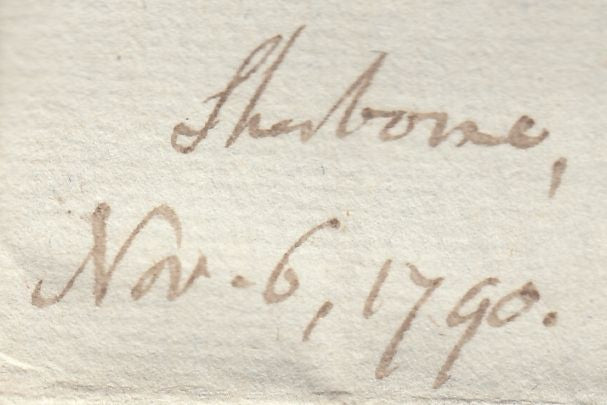 Sherborne,
Nov. 6, 1790.